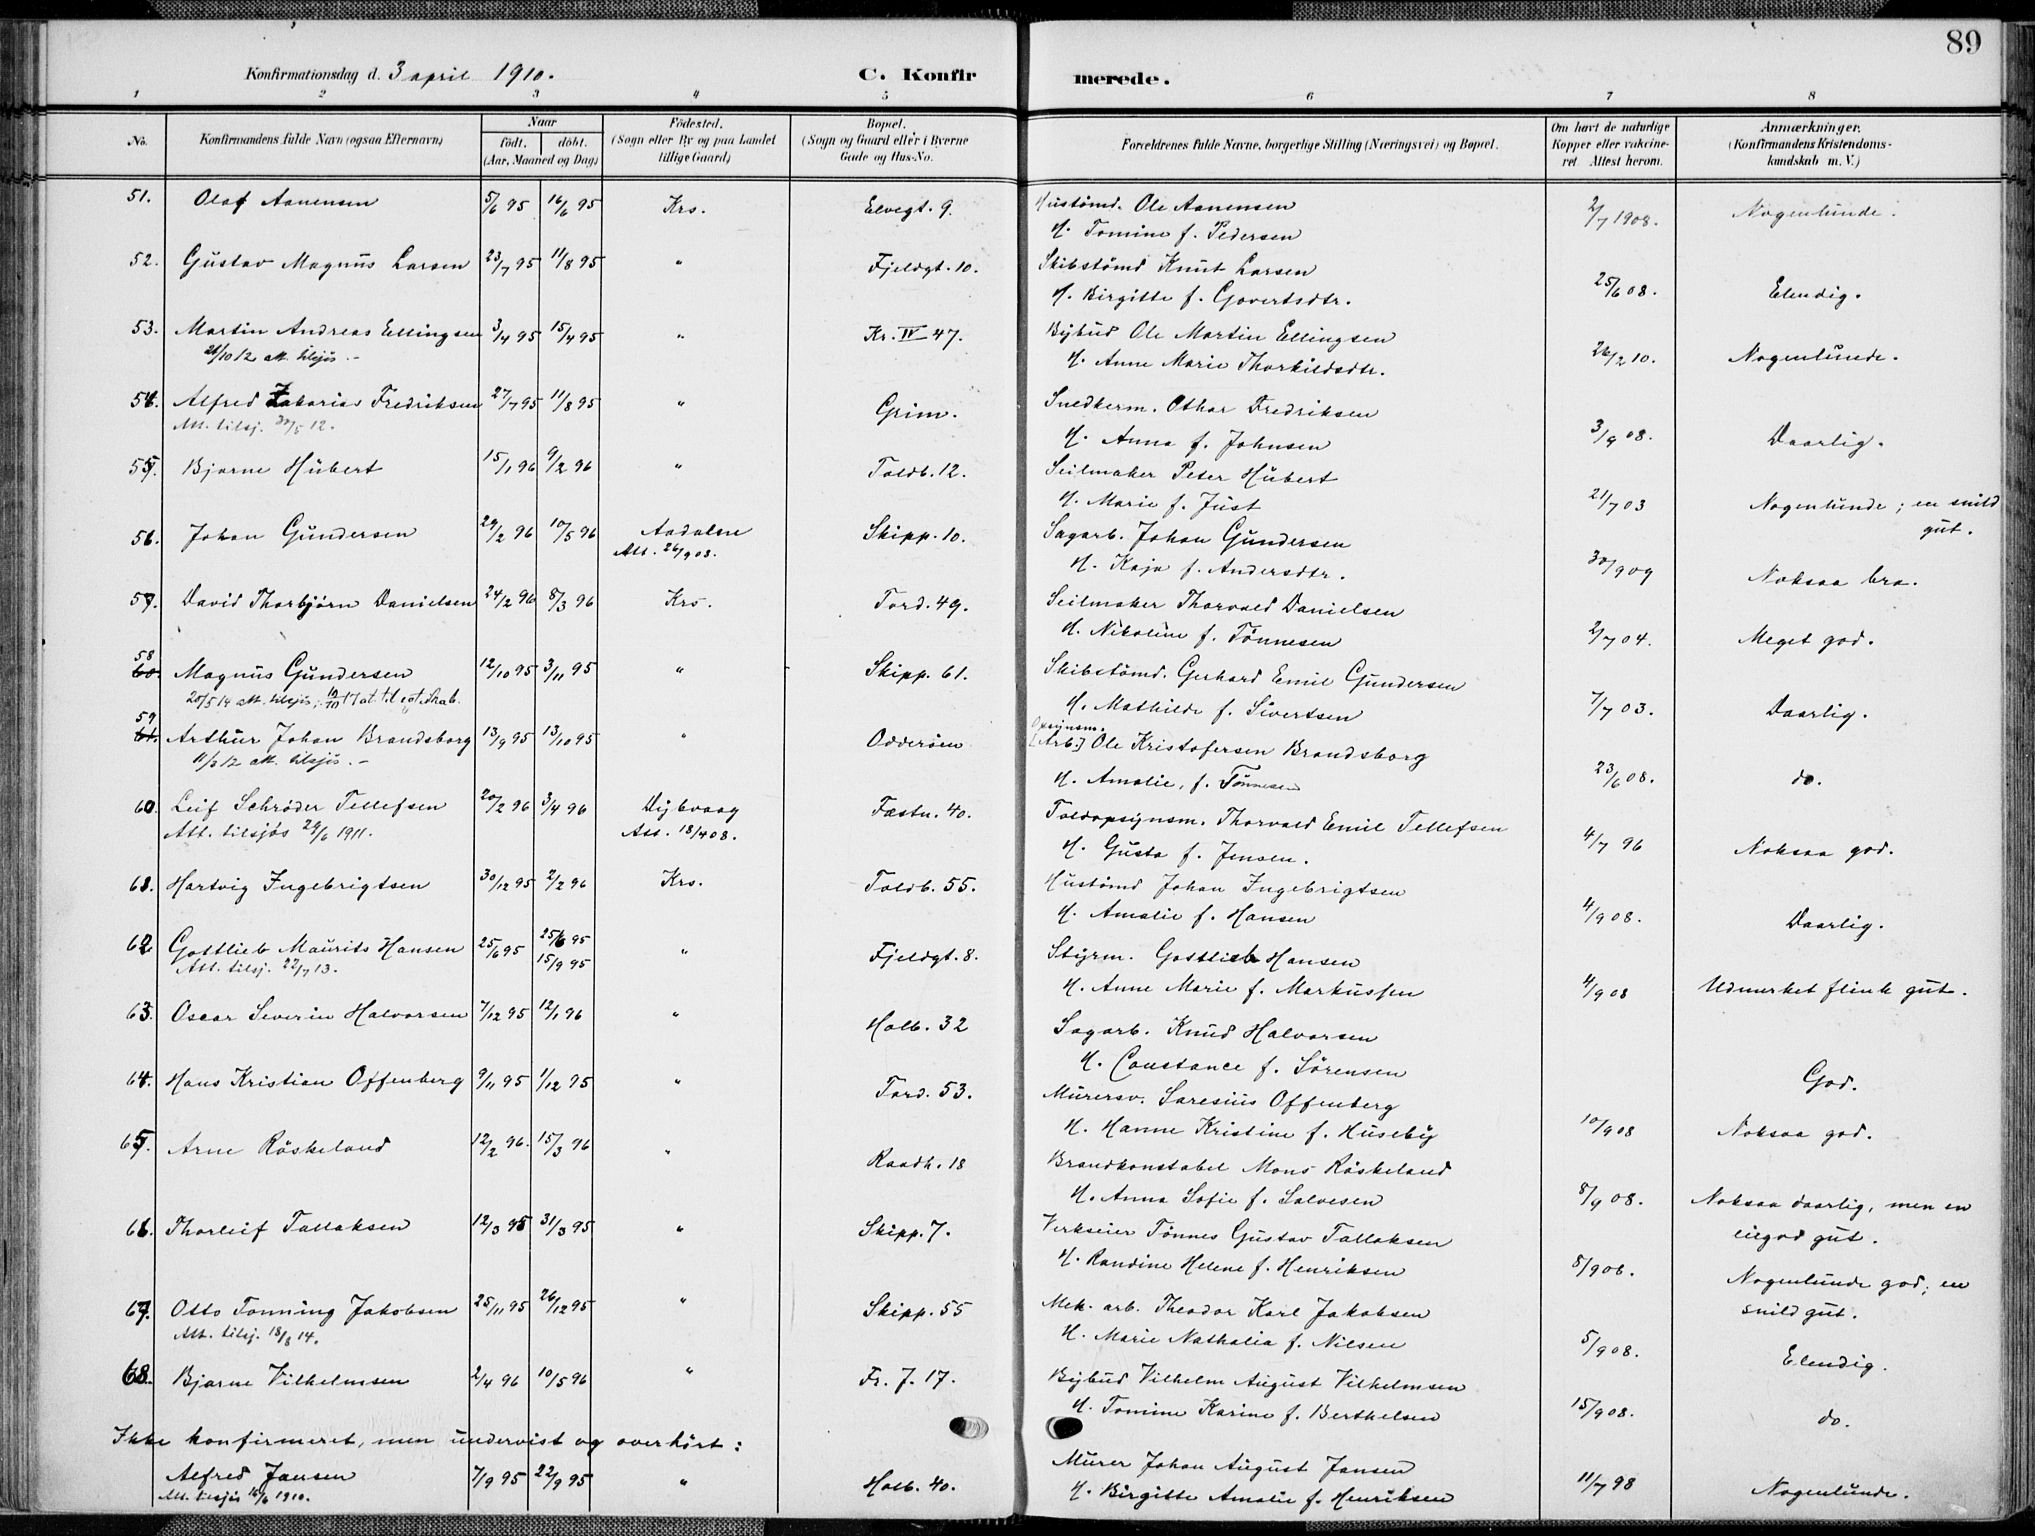 89
Konfirmationsdag d. 3 april 1910.
C. Konfirmerede.
1 2 3 4 5 6 7 8
No.
Konfirmandens fulde Navn (ogsaa Efternavn)
Naar
födt. döbt.
(Aar, Maaned og Dag)
Födested.
(Sogn eller By og paa Landet
tillige Gaard)
Bopæl.
(Sogn og Gaard eller i Byerne
Gade og Hus-No.
Forældrenes fulde Navne, borgerlige Stilling (Næringsvei) og Bopæl.
Om havt de naturlige
Kopper eller vakcine-
ret Attest herom.
Anmærkninger.
(Konfirmandens Kristendoms-
kundskab m. V.)
51. Olaf Aanensen 5/6 95 16/6 95 Krs. Elvegt. 9. Hustømd. Ole Aanensen 2/7 1908. Nogenlunde.
H. Tomine f. Pedersen
52. Gustav Magnus Larsen 23/7 95 11/8 95 " Fjeldgt. 10. Skibstømd Knut Larsen 25/6 08. Elendig.
H. Birgitte f. Govertsdtr.
53. Martin Andreas Ellingsen 3/4 95 15/4 95 " Kr. IV 47. Bybud Ole Martin Ellingsen 26/2 10. Nogenlunde.
26/10 12 att. tilsjis. - H. Anne Marie Thorkildsdtr.
54. Alfred Zakarias Fredriksen 27/7 95 11/8 95 " Grim. Snedkerm. Othar Fredriksen 3/9 08. Daarlig.
Att. tilsj. 30/5 12. H. Anna f. Johnsen
55. Bjarne Hubert 15/1 96 9/2 96 " Toldb. 12. Seilmaker Peter Hubert 21/7 03 Nogenlunde; en snild
H. Marie f. Just gut.
56. Johan Gundersen 29/2 96 10/5 96 Aadalen Skipp. 10. Sagarb. Johan Gundersen 30/9 09 Noksaa bra.
Att. 26/9 08. H. Kaja f. Andersdtr.
57. David Thorbjörn Danielsen 24/2 96 8/3 96 Krs. Tord. 49. Seilmaker Thorvald Danielsen 2/7 04. Meget god.
H. Nikoline f. Tönnesen
58
60. Magnus Gundersen 12/10 95 3/11 95 " Skipp. 61. Skibstømd. Gerhard Emil Gundersen 7/7 03. Daarlig.
20/5 14 att. tilsjis; 10/10 17 at. til egteskab. H. Mathilde f. Sivertsen
59
61. Arthur Johan Brandsborg 13/9 95 13/10 95 " Odderöen Opsynsm. [Arb.] Ole Kristofersen Brandsborg 23/6 08. do.
11/3 12 att. tilsjis. - H. Amalie, f. Tønnesen
60. Leif Schröder Tellefsen 20/2 96 3/4 96 Dybvaag Fæstn. 40. Toldopsynsm. Thorvald Emil Tellefsen 4/7 96 Noksaa god.
Att. tilsjøs 29/6 1911. Att. 18/4 08. H. Gusta f. Jensen.
61. Hartvig Ingebrigtsen 30/12 95 2/2 96 Krs. Toldb. 55. Hustømd Johan Ingebrigtsen 4/9 08. Daarlig.
H. Amalie f. Hansen
62 Gottlieb Maurits Hansen 25/6 95 25/6 95 15/9 95 " Fjeldgt. 8. Styrm. Gottlieb Hansen 4/9 08 Udmerket flink gut.
Att. tilsj. 22/7 13. H. Anne Marie f. Markussen
63. Oscar Severin Halvorsen 7/12 95 12/1 96 " Holb. 32 Sagarb. Knud Halvorsen God.
H. Constance f. Sörensen
64. Hans Kristian Offenberg 9/11 95 1/12 95 " Tord. 53. Murersv. Saresius Offenberg 10/9 08 Noksaa god.
H. Hanne Kristine f. Huseby
65. Arne Röskeland 12/2 96. 15/3 96 " Raadh. 18 Brandkonstabel Mons Röskeland 8/9 08. Noksaa daarlig, men en
H. Anna Sofie f. Salvesen eiegod gut.
66. Thorleif Tallaksen 12/3 95 31/3 95 " Skipp. 7. Verkseier Tönnes Gustav Tallaksen 8/9 06. Nogenlunde god; en
H. Randine Helene f. Henriksen snild gut.
67. Otto Tonning Jakobsen 25/11 95 26/12 95 " Skipp. 55 Mek. arb. Theodor Karl Jakobsen 5/9 08. Elendig.
Att. tilsj. 18/8 14. H. Marie Nathalia f. Nilsen
68. Bjarne Vilhelmsen 2/4 96 10/5 96 " Fr. 7. 17. Bybud Vilhelm August Vilhelmsen 15/9 08. do.
H. Tomine Karine f. Berthelsen
Ikke konfirmeret, men undervist og overhört:
Alfred Jansen 7/9 95 22/9 95 " Holb. 40. Murer Johan August Jansen 11/7 98 Nogenlunde.
Att. tilsjis 16/6 1910. H. Birgitte Amalie f. Henriksen